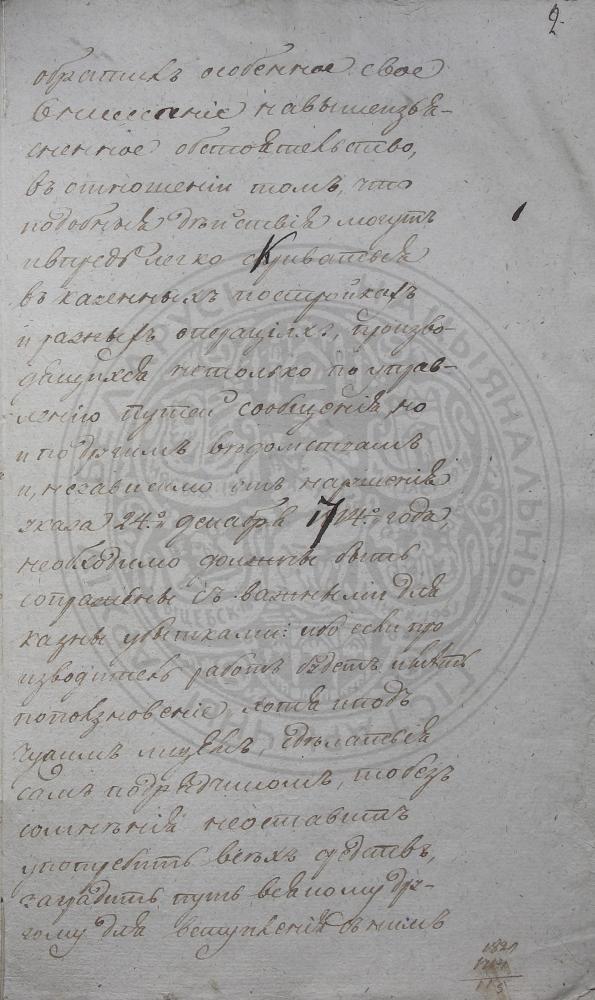 2.
обратилъ особенное свое
вниманіе на вышеизъя-
сненное обстоятельство,
въ отношеніи томъ, что
подобныя дѣйствія могутъ
и впредь легко скрыватьья
въ казенныхъ постройкахъ
и разныхъ операціяхъ, произво-
дящихся нетолько по управ-
ленію путей сообщенія, но
и по другимъ вѣдомствамъ
и, независимо отъ нарушенія
указа 24.го декабря 1714.го года,
необходимо должны быть
сопряжены съ важными для
казны убытками: ибо если про
изводитель работъ будетъ имѣть
поползновеніе хотя и подъ
чужимъ лицемъ, сдѣлаться
самъ подрядчикомъ, то безъ
сомнѣнія неоставитъ
употребить всѣхъ средствъ,
заградить путь всякому дру-
гому для вступленія съ нимъ
1829
1714
115